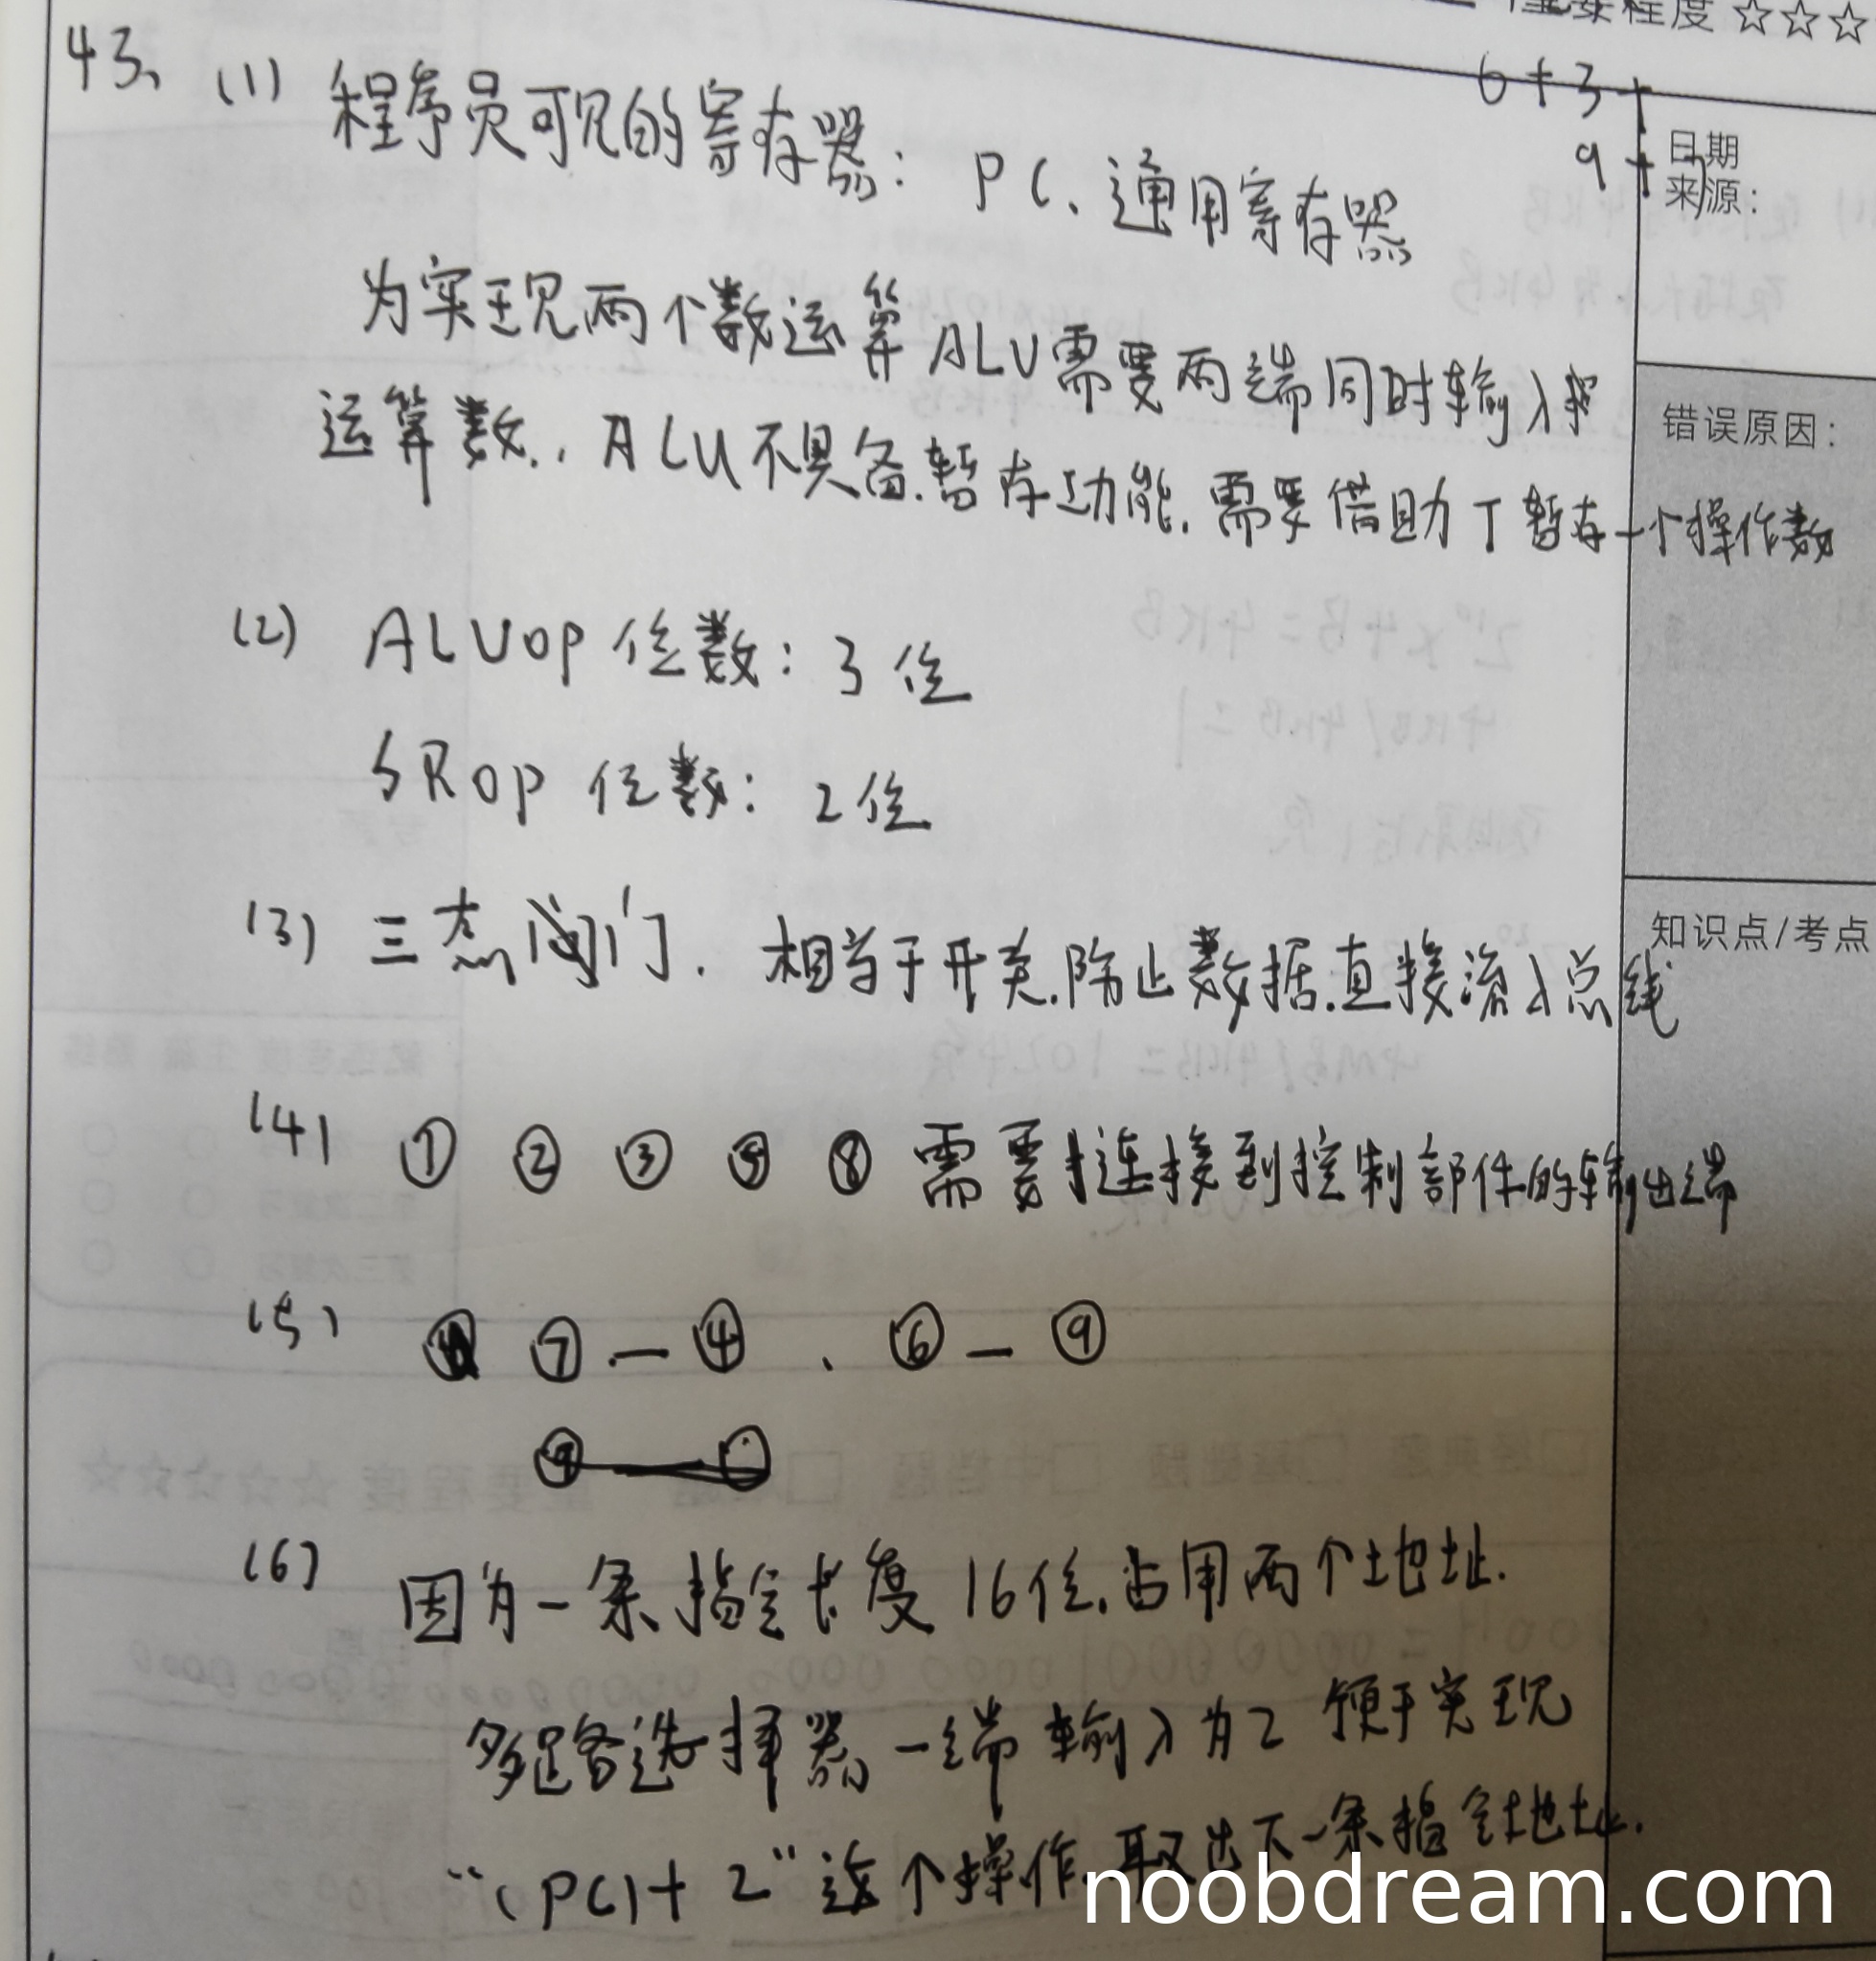 重要程度 ☆☆☆
6+3+
9+7
日期
来源:
43、(1) 程序员可见的寄存器: PC、通用寄存器
为实现两个数运算 ALU需要两端同时输入
运算数., ALU不具备.暂存功能.需要借助T暂存一个操作数
错误原因:
(2) ALUop 位数: 3位
SRop 位数: 2位
(3) 三态门. 相当于开关.防止数据.直接流入总线
知识点/考点
(4) ① ② ③ ⑤ ⑧ 需要连接到控制部件的输出端
(5) ⑦.—④ 、⑥—⑨
(6) 因为一条指令长度16位.占用两个地址.
多路选择器一端输入为2 便于实现
“(PC)+2”这个操作.取出下一条指令地址.
noobdream.com